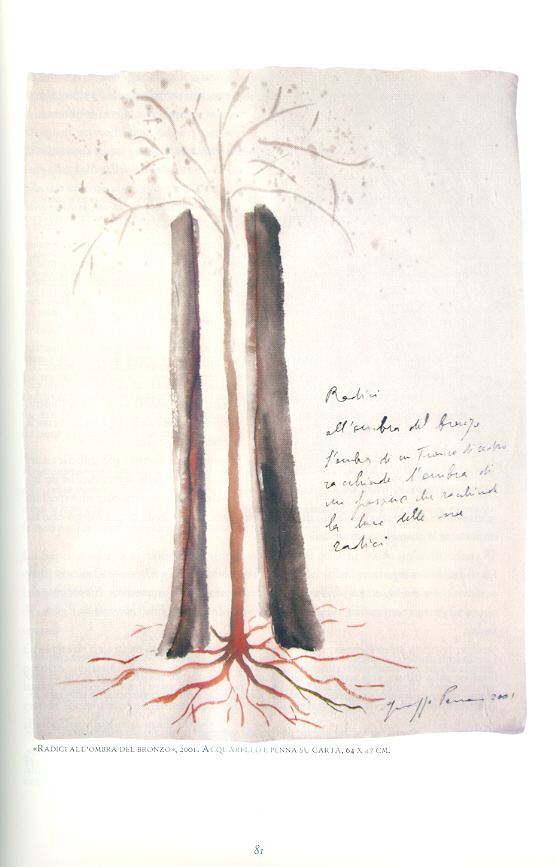 Radici
all'ombra del bronzo
l'ombra di un Tronco di cedro
racchiude l'ombra di
un frassino che racchiude
la luce delle sue
radici
Giuseppe Penone 2001
«RADICI ALL'OMBRA DEL BRONZO», 2001. ACQUARELLO E PENNA SU CARTA, 64 X 47 CM.
81